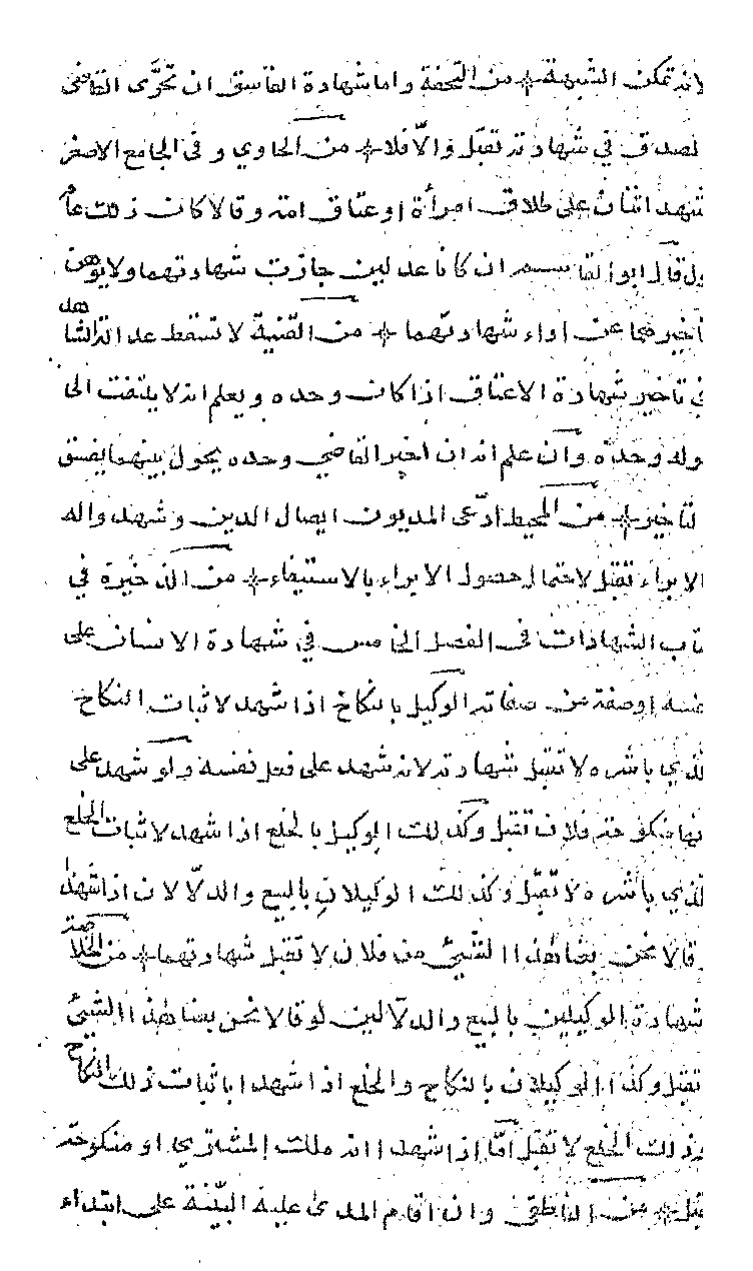 لانه تمكن الشبهة * من التحفة واما شهادة الفاسق ان تحرّى القاضى
لصدق في شهادته تقبل والّا فلا * من الحاوي وفى الجامع الاصغر
شهد اثنان على طلاق امرأة او عتاق امته وقالا كان ذلك عام
ول قال ابو القاسم ان كانا عدلين جازت شهادتهما ولا يوهن
تأخيرهما عن اداء شهادتهما * من القنية لا تسقط عدالة الشاهد
في تأخير شهادة الاعتاق اذا كان وحده ويعلم انه لا يلتفت الى
وله وحده وان علم انه ان اخبر القاضي وحده يحول بينهما يفسق
لتأخير * من المحيط ادّعى المديون ايصال الدين وشهد واله
الابراء تقبل لاحتمال حصول الابراء بالاستيفاء * من الذخيرة في
تاب الشهادات فى الفصل الخامس في شهادة الانسان على
فسه او صفة من صفاته الوكيل بالنكاح اذا شهد لاثبات النكاح
لذي باشره لا تقبل شهادته لانه شهد على فعل نفسه ولو شهد على
نها منكوحته فلان تقبل وكذلك الوكيل بالخلع اذا شهد لاثبات الخلع
لذي باشره لا تقبل وكذلك الوكيلان بالبيع والدلّالان اذا شهدا
قالا نحن بعنا هذا الشيئ من فلان لا تقبل شهادتهما * من الخلاصة
شهادة الوكيلين بالبيع والدلّالين لو قالا نحن بعنا هذا الشيئ
تقبل وكذا الوكيلان بالنكاح والخلع اذا شهدا باثبات ذلك النكاح
وذلك الخلع لا تقبل امّا اذا شهدا انه ملك المشتري او منكوحته
قبل * من الناطفى وان اقام المدعى عليه البيّنة على ابتداء